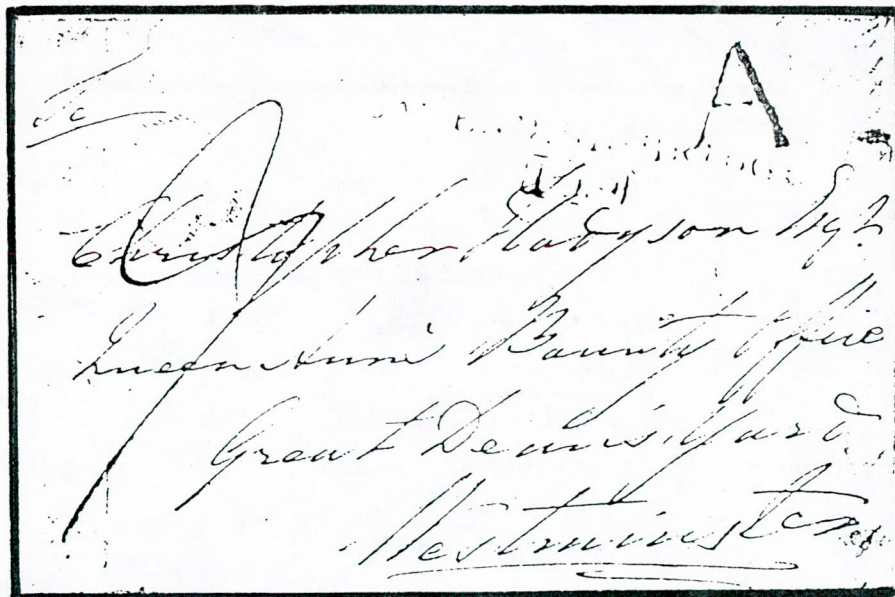 A
To
Christopher Hodgson Esqr.
Queen Anns Bounty Office
Great Deans Yard
Westminster